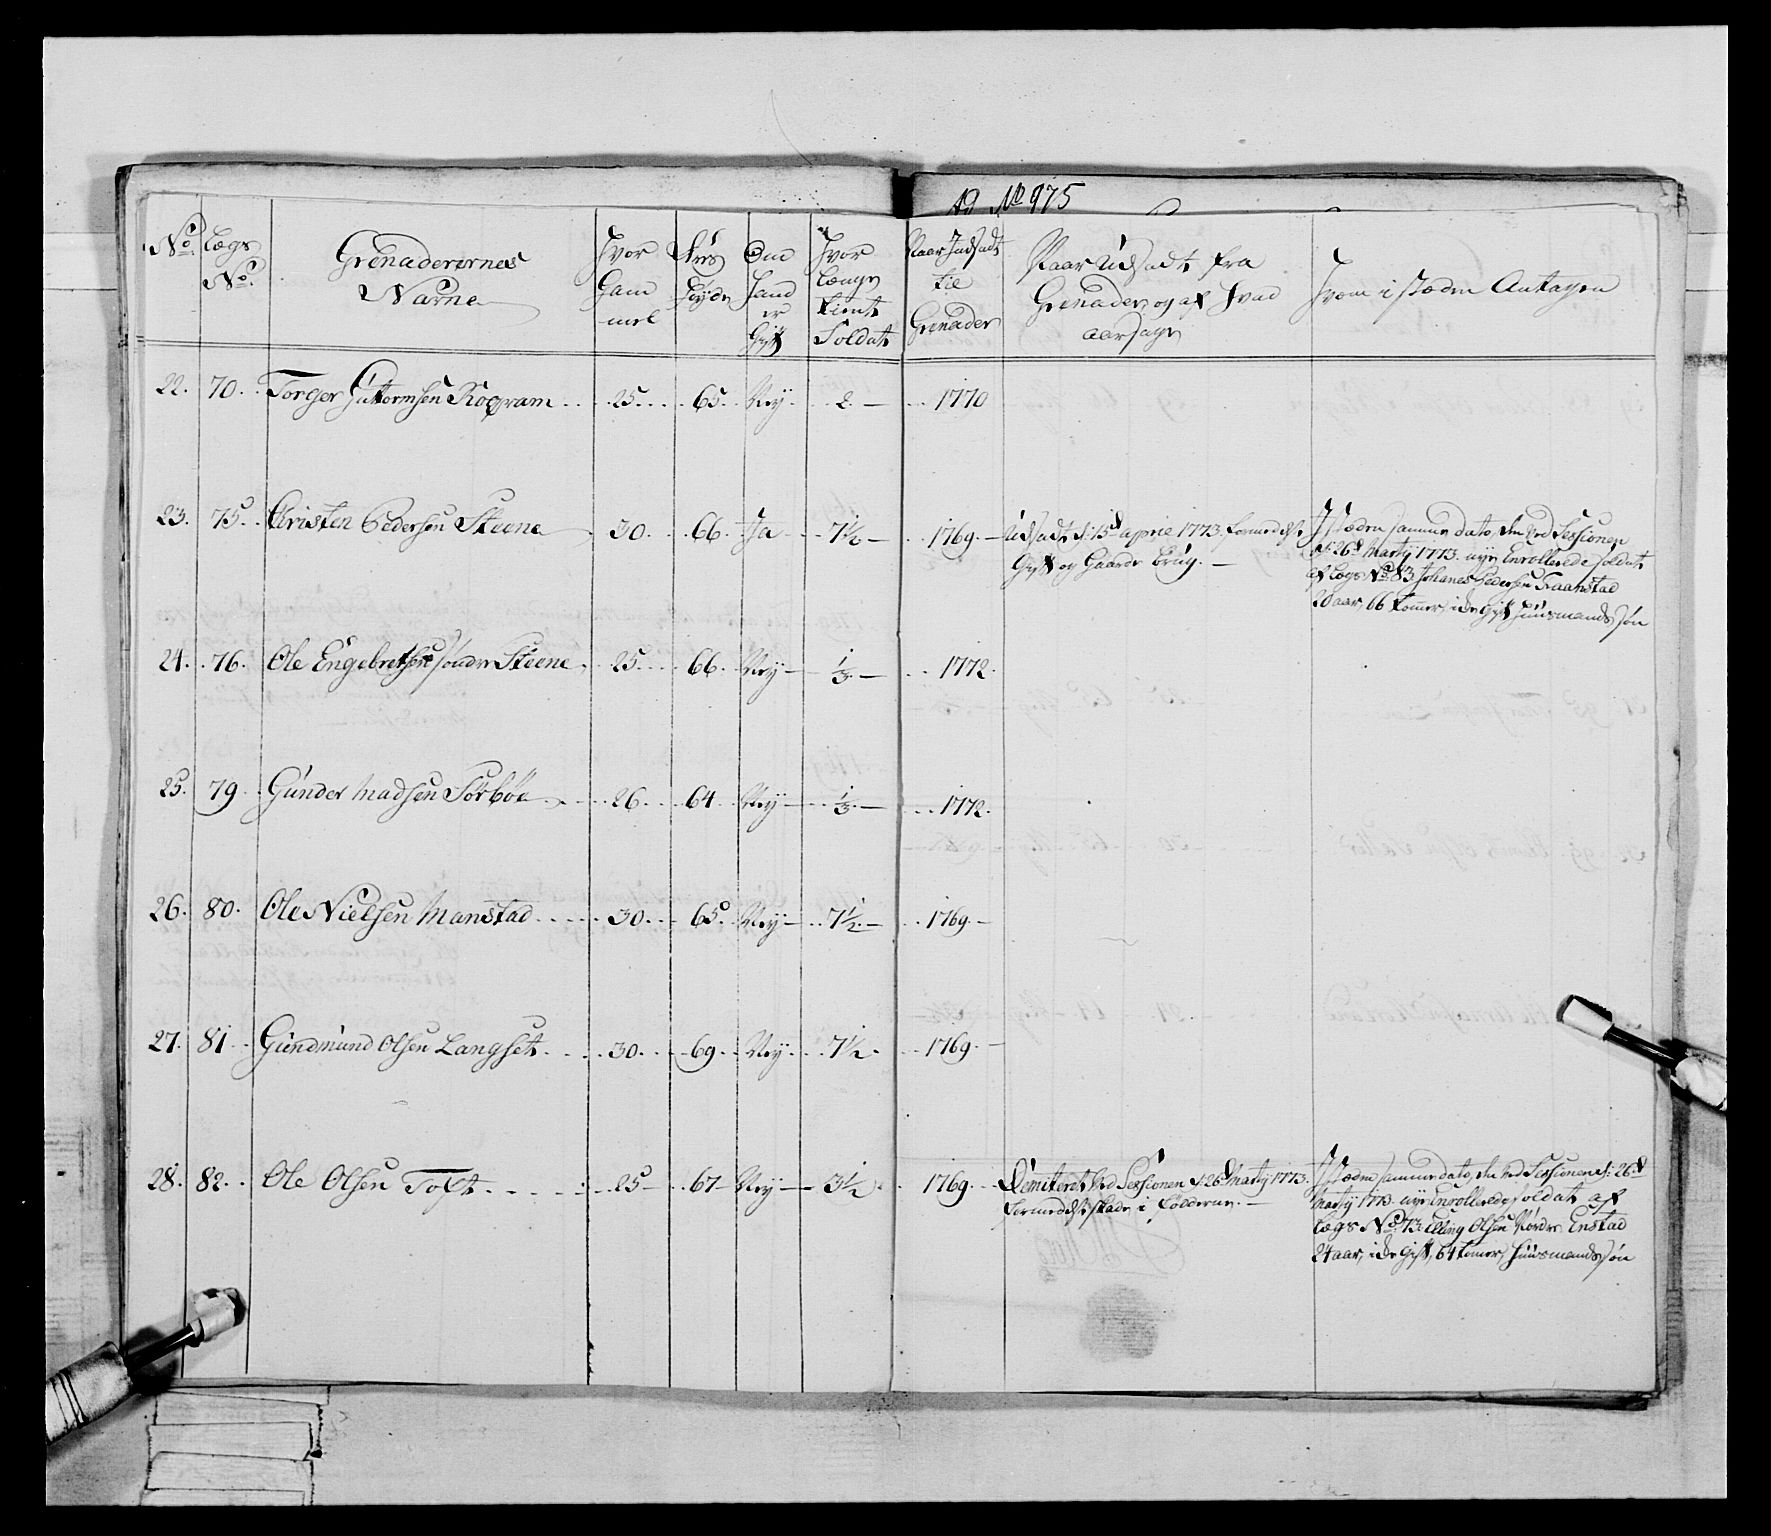 Ad No 975
No Lægs No Grenaderernes Navne Hvor Gammel Hvis Høyde Om Hand er Gift Hvor længe tient Soldat Naar Indsadt til Grenader Naar Udsadt fra Grenader, og af hvad aarsage Hvem i stæden Antagen
22. 70. Torger Guttormsen 25. 65. Ney 2. 1770
23. 75. Christen Pedersen Steene 30. 66. Ja 7½ 1769. Udsadt d: 15d aprie 1773, formedelst
Gift og Gaards brug.
I stæden samme dato, den ved Sessionen
d: 26d Martÿ 1773. nye Enrollerede soldat
af Lægs No 83 Johanes Pedersen
20 aar, 66 tommer, icke Gift huusmands søn
24. 76. Ole Engebretsen søndre Steene 25. 66. Ney ⅓. 1772.
25. 79. Gunder Madsen Sørbøe 26. 64. Ney ⅓. 1772.
26. 80. Ole Nielsen Manstad 30. 65. Ney 7½. 1769.
27. 81. Gundmund Olsen Langset. 30. 69. Ney 7½. 1769.
28. 82. Ole Olsen Toft 25 67 Ney 3½. 1769. Demiteret ved Sessionen d. 26d Martÿ 1773.
formedelst skade i
I stæden samme dato, den ved Sessionen d: 26d
Martÿ 1773. nye Enrollerede soldat af
Lægs No 73. Elling Olsen Nordre Enstad
24 aar, icke Gift, 64 tomer, huusmands søn